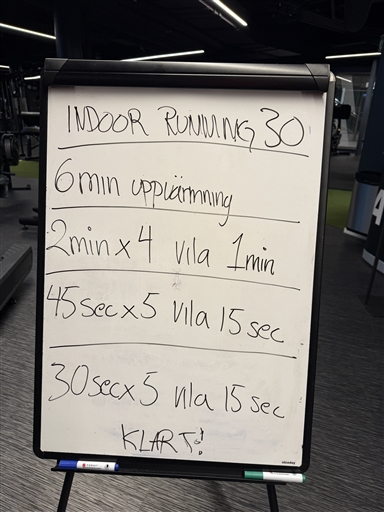 INDOOR RUNNING 30
6min uppvärmning
2min x 4 vila 1min
45sec x 5 vila 15 sec
30sec x 5 vila 15 sec
KLART!